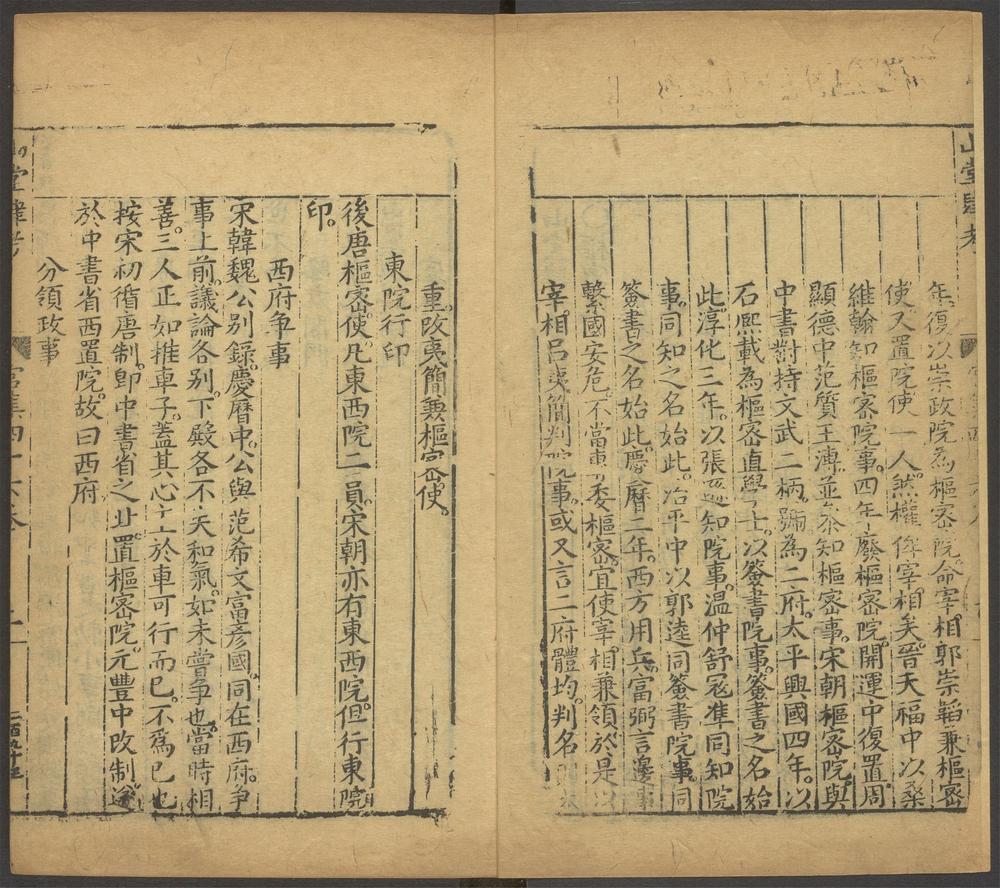 山堂肆考
年復以崇政院為樞密院命宰相郭崇韜兼樞密
使又置院使一人然權侔宰相矣晉天福中以桑
維翰知樞密院事四年廢樞密院開運中復置周
顯德中范質王溥並參知樞密事宋朝樞密院與
中書對持文武二柄號為二府太平興國四年以
石熙載為樞密直學士以簽書院事簽書之名始
此淳化三年以張遜知院事温仲舒冦準同知院
事同知之名始此冶平中以郭逵同簽書院事同
簽書之名始此慶曆二年西方用兵富弼言邊事
繫國安危不當專委樞密宜使宰相兼領於是以
宰相吕夷簡判院事或又言二府體均判名
重改夷簡兼樞密使
東院行印
後唐樞密使凡東西院二員宋朝亦有東西院但行東院
印
西府争事
宋韓魏公别錄慶曆中公與范希文富彦國同在西府争
事上前議論各别下殿各不失和氣如未嘗争也當時相
善三人正如推車子蓋其心主於車可行而已不為已也
按宋初循唐制即中書省之北置樞密院元豐中改制遂
於中書省西置院故曰西府
分領政事
山堂肆考
宫集四十六卷
二